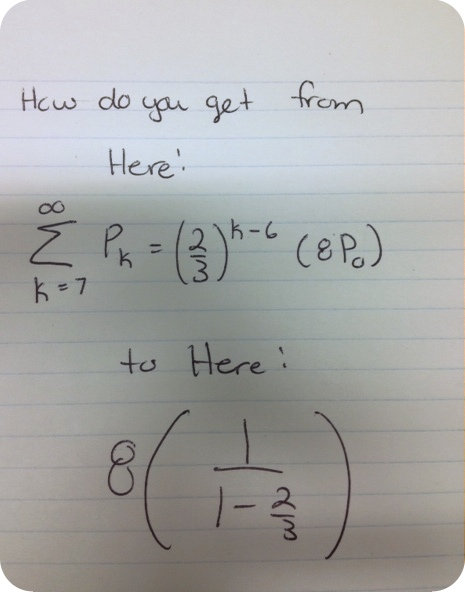 How do you get from
Here:
∞
∑ P_k = (2/3)^{k-6} (8P_0)
k=7
to Here:
8(1/(1 - 2/3))